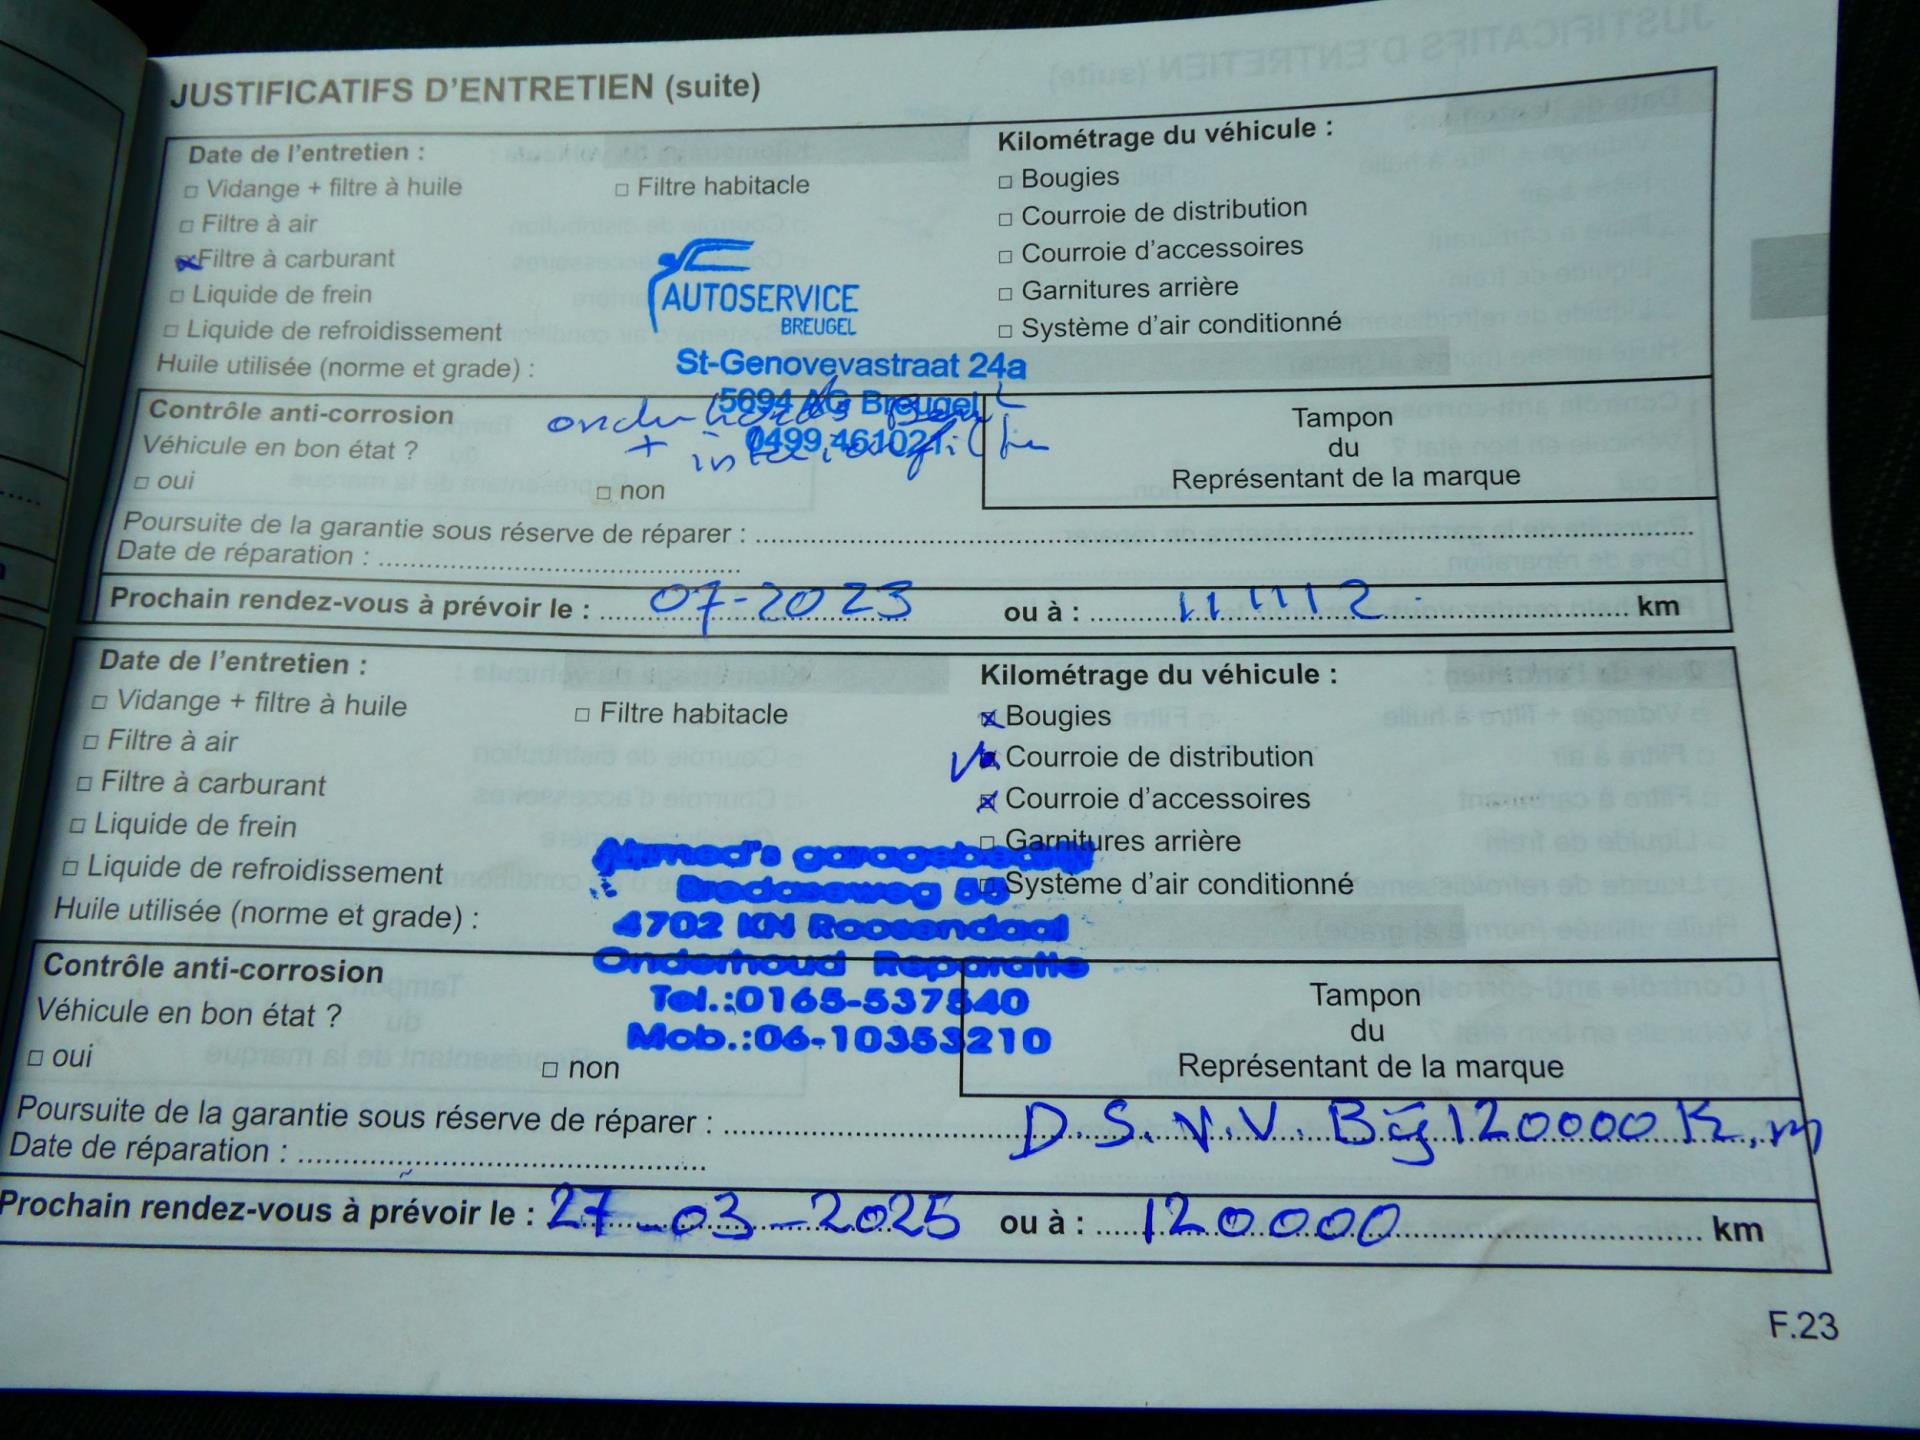 JUSTIFICATIFS D'ENTRETIEN (suite)
Date de l'entretien :
Kilométrage du véhicule :
□ Vidange + filtre à huile
□ Filtre habitacle
□ Bougies
□ Filtre à air
□ Courroie de distribution
Filtre à carburant
□ Courroie d'accessoires
□ Liquide de frein
□ Garnitures arrière
□ Liquide de refroidissement
□ Système d'air conditionné
Huile utilisée (norme et grade) :
AUTOSERVICE
BREUGEL
St-Genovevastraat 24a
5694 AG Breugel
0499 461021
+
Contrôle anti-corrosion
Véhicule en bon état ?
□ oui
□ non
Tampon
du
Représentant de la marque
Poursuite de la garantie sous réserve de réparer :
Date de réparation :
Prochain rendez-vous à prévoir le : 07-2023 ou à : 111112 km
Date de l'entretien :
Kilométrage du véhicule :
□ Vidange + filtre à huile
□ Filtre habitacle
Bougies
□ Filtre à air
Courroie de distribution
□ Filtre à carburant
Courroie d'accessoires
□ Liquide de frein
□ Garnitures arrière
□ Liquide de refroidissement
□ Système d'air conditionné
Huile utilisée (norme et grade) :
Ahmed's garagebedrijf
Bredaseweg
4702 KN Roosendaal
Onderhoud Reparatie
Tel.:0165-537540
Mob.:06-10353210
Contrôle anti-corrosion
Véhicule en bon état ?
□ oui
□ non
Tampon
du
Représentant de la marque
Poursuite de la garantie sous réserve de réparer : D.S.N.V. Bij 120000 K.m
Date de réparation :
Prochain rendez-vous à prévoir le : 27-03-2025 ou à : 120000 km
F.23